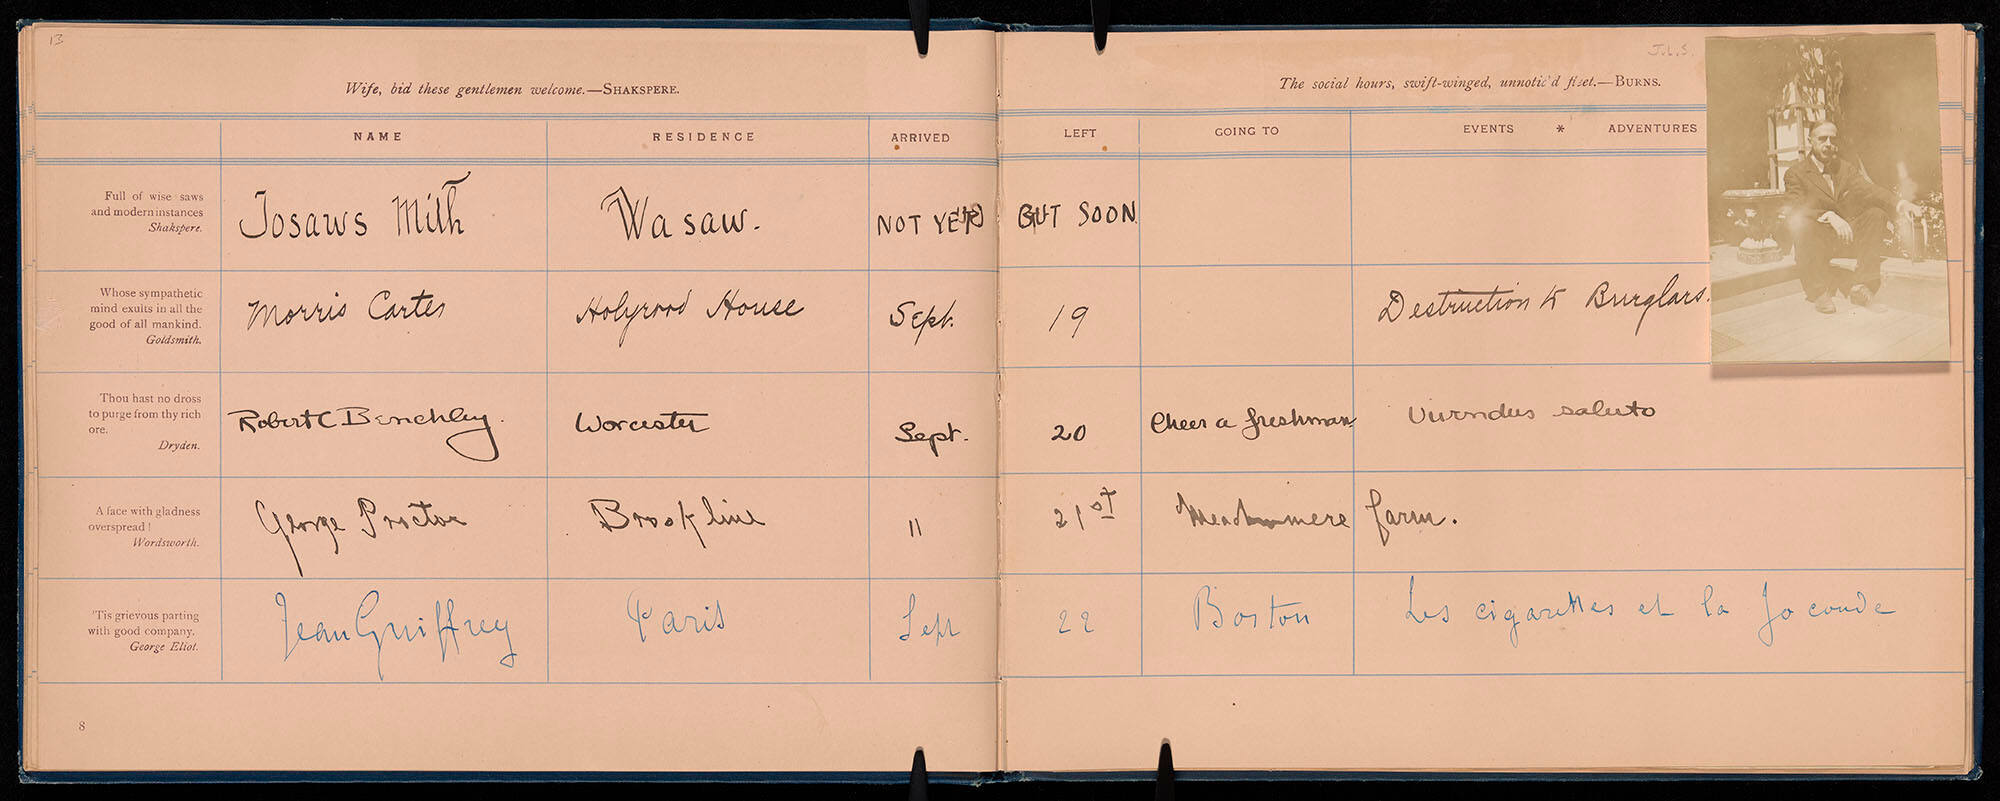 13
J.L.S.
Wife, bid these gentlemen welcome.—SHAKSPERE.
The social hours, swift-winged, unnotic'd fleet.—BURNS.
NAME RESIDENCE ARRIVED LEFT GOING TO EVENTS * ADVENTURES
Full of wise saws
and modern instances
Shakspere.
Josaws Mith Wasaw. NOT YET BUT SOON
Whose sympathetic
mind exults in all the
good of all mankind.
Goldsmith.
Morris Carter Holyrood House Sept. 19 Destruction to Burglars.
Thou hast no dross
to purge from thy rich
ore.
Dryden.
Robert C Benchley. Worcester Sept. 20 Cheer a freshman saluto
A face with gladness
overspread!
Wordsworth.
George Proctor Brookline " 21st mere farm.
'Tis grievous parting
with good company.
George Eliot.
Jean Guiffrey Paris Sept 22 Boston Les cigarettes et la Joconde
8